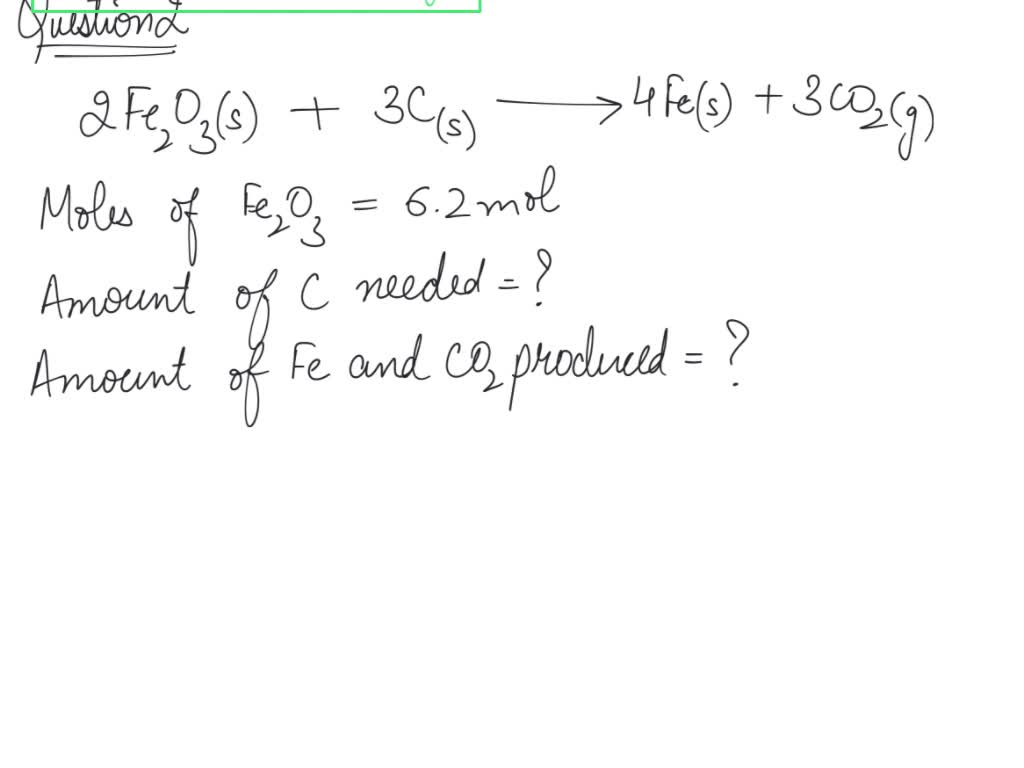 Question 2
2Fe₂O₃(s) + 3C(s) ⟶ 4Fe(s) + 3CO₂(g)
Moles of Fe₂O₃ = 6.2 mol
Amount of C needed = ?
Amount of Fe and CO₂ produced = ?